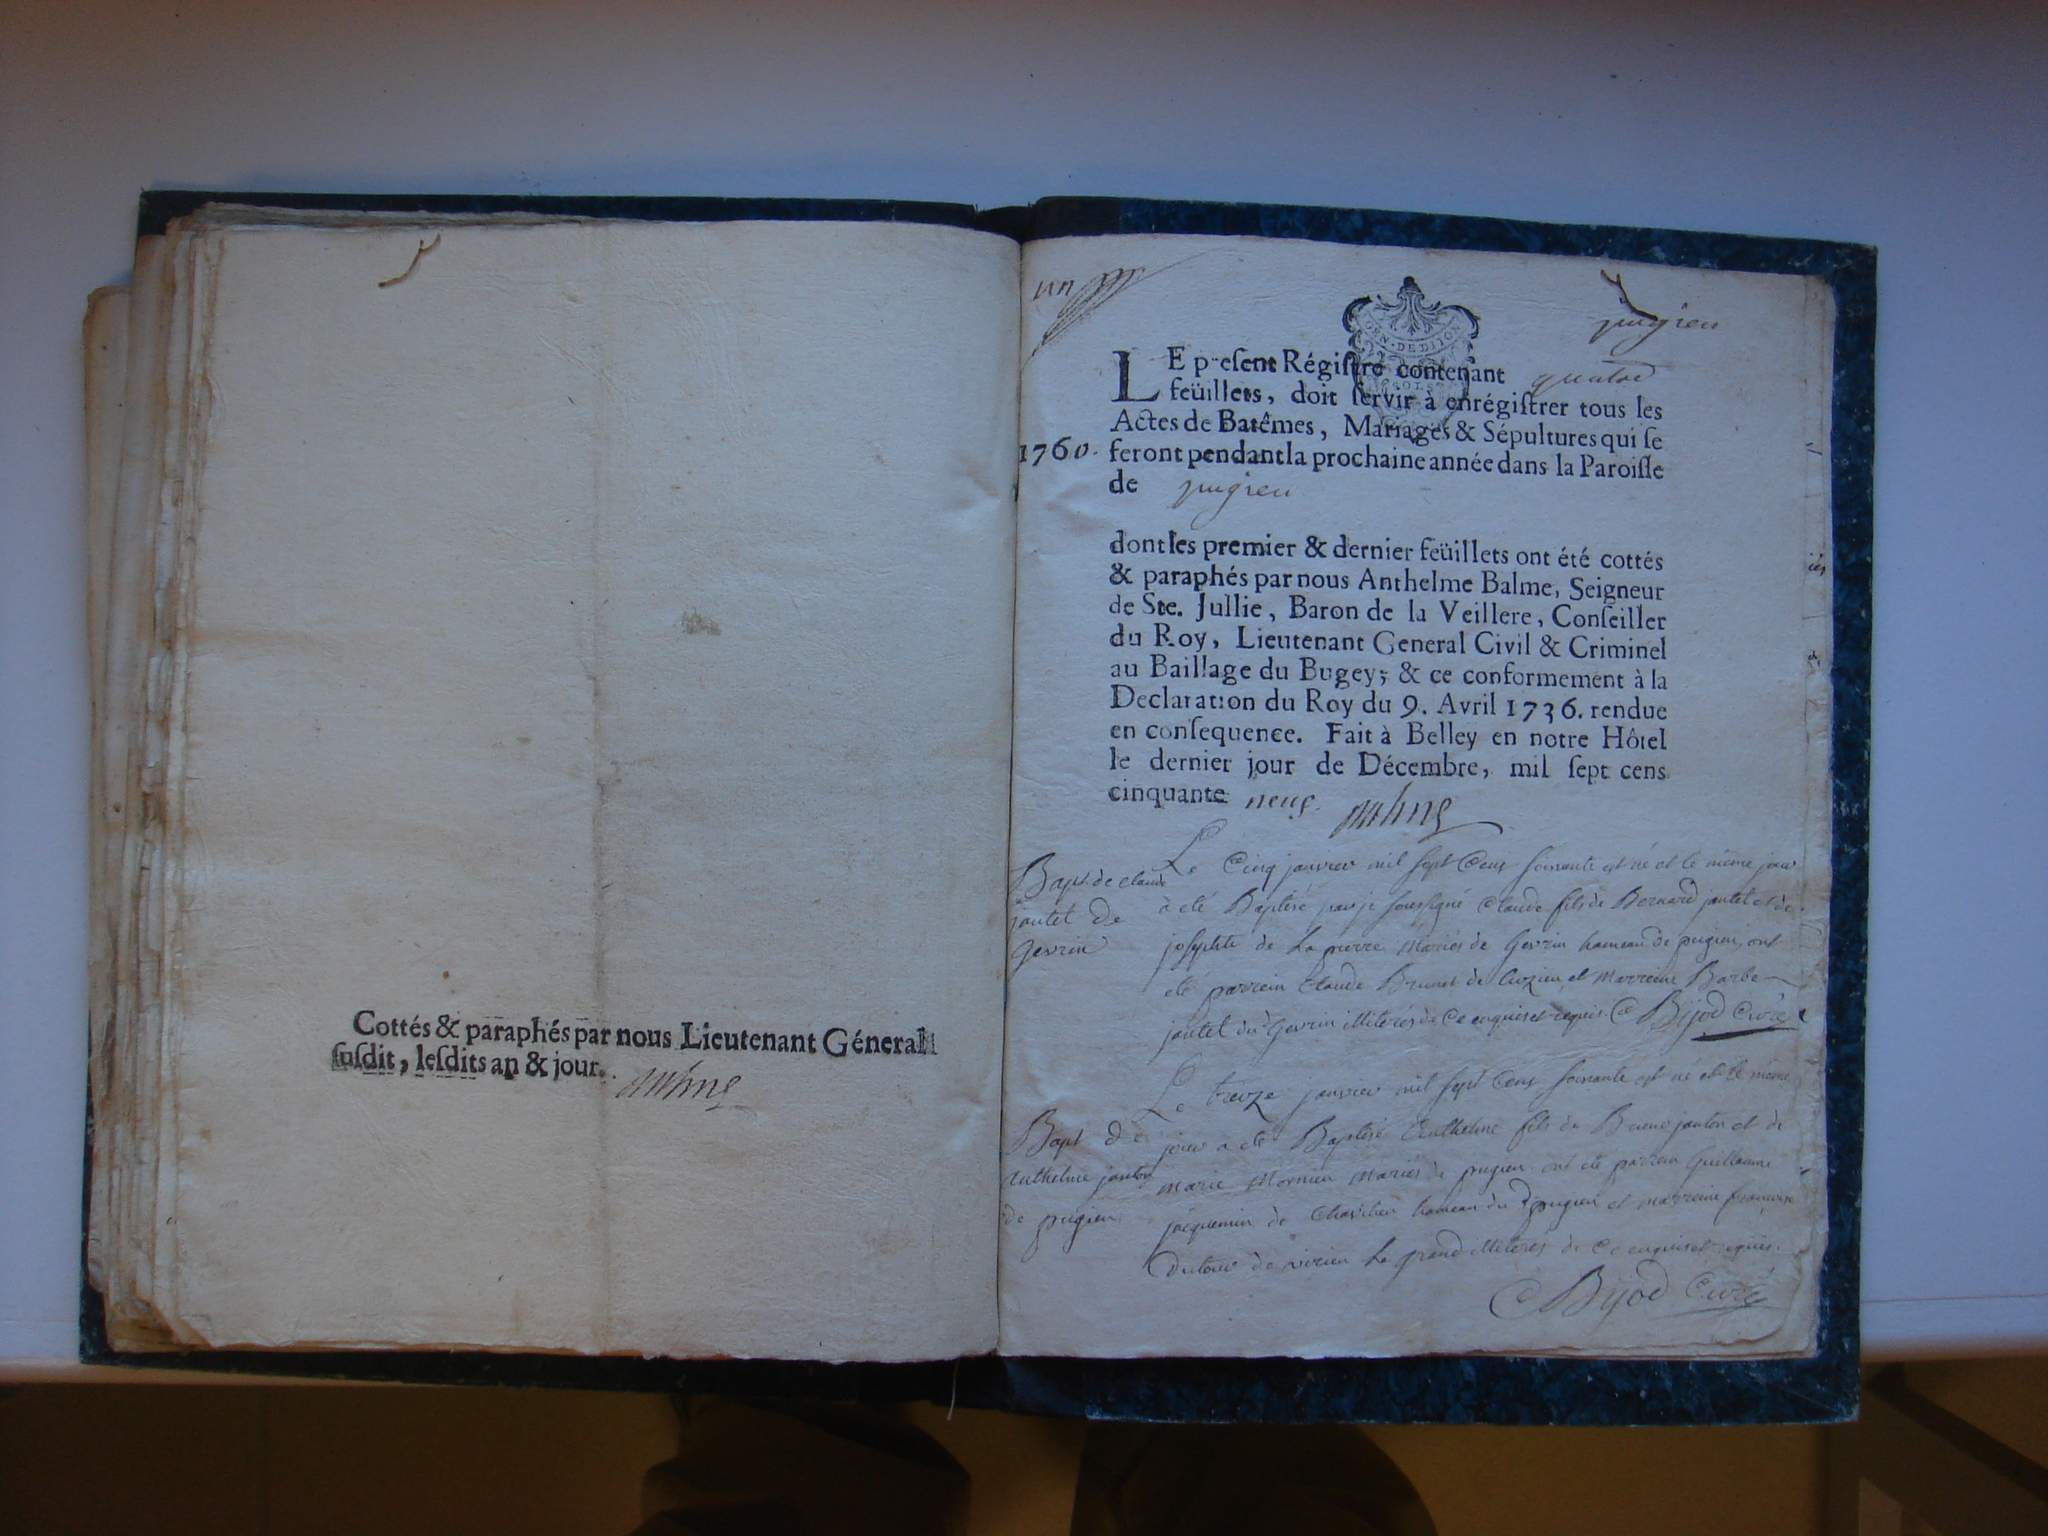 Cottés & paraphés par nous Lieutenant Géneral
susdit, lesdits an & jour.
un
GEN. DE DIJON
pugieu
LE present Régistre contenant
feüillets, doit servir à enrégistrer tous les
Actes de Batêmes, Mariages & Sépultures qui se
1760. feront pendant la prochaine année dans la Paroisse
de pugieu
dont les premier & dernier feüillets ont été cottés
& paraphés par nous Anthelme Balme, Seigneur
de Ste. Jullie, Baron de la Veillere, Conseiller
du Roy, Lieutenant General Civil & Criminel
au Baillage du Bugey; & ce conformement à la
Declaration du Roy du 9. Avril 1736. rendue
en consequence. Fait à Belley en notre Hôtel
le dernier jour de Décembre, mil sept cens
cinquante neuf.
Bapt. de claude
jantet de
Gevrin
Le Cinq janvier mil sept Cens soixante est né et le même jour
à eté Baptisé par je soussigné Claude fils de Bernard jantet et de
josephte de La pierre Mariés de Gevrin hameau de pugieu, ont
eté parrein Claude Brunet de Cuzieu et Marreine Barbe
jantet du Gevrin illiterés de Ce enquis et requis. Bijod Curé
Bapt de
Anthelme janton
de pugieu
Le treize janvier mil sept Cens soixante est né et le même
jour à eté Baptisé Anthelme fils de janton et de
Marie Mornieu Mariés de pugieu ont eté parrein Guillaume
jacquemin de hameau du pugieu et marreine francoise
dutour de virieu Le grand illiterés de Ce enquis et requis.
Bijod Curé